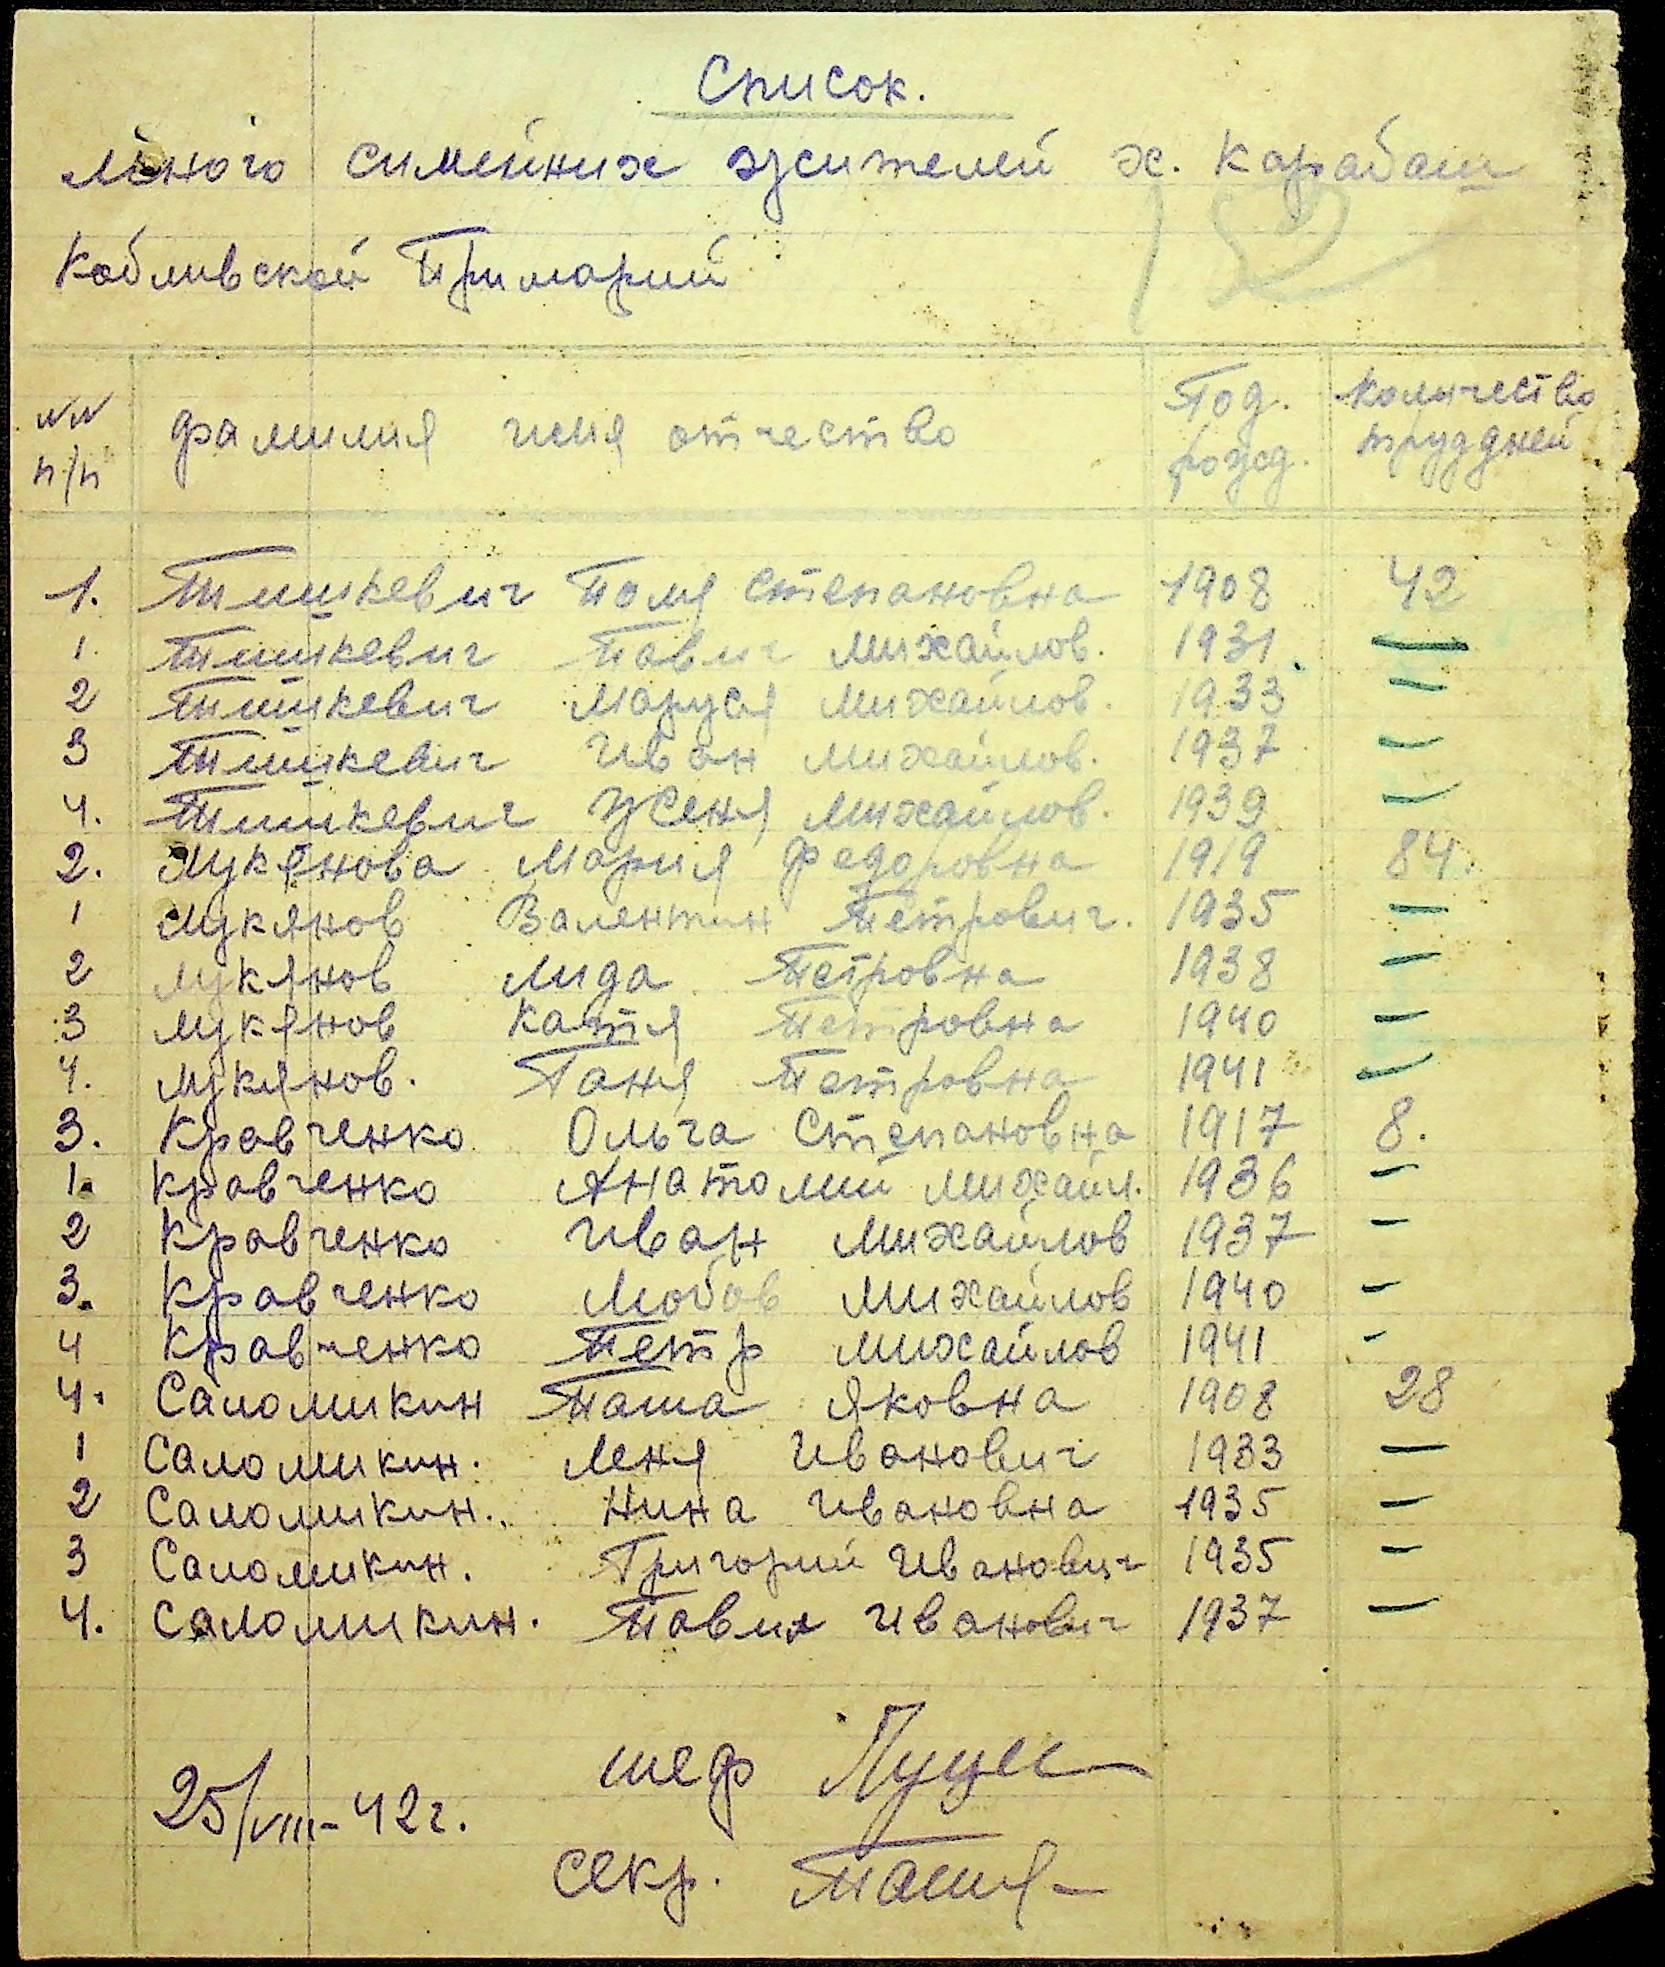 Список.
много симейних жителей х. Карабаш
Кобливской Примарий
№№ п/п фамилия имя отчество Год. рожд. количество труддней
1. Тишкевич Поля Степановна 1908 42
1. Тишкевич Павлик Михайлов. 1931 —
2 Тишкевич Маруся Михайлов. 1933 —
3 Тишкевич Иван Михайлов. 1937 —
4. Тишкевич Женя Михайлов. 1939 —
2. Лукянова Мария Федоровна 1919 84.
1 Лукянов Валентин Петрович. 1935 —
2 Лукянов Лида Петровна 1938 —
3 Лукянов Катя Петровна 1940 —
4. Лукянов. Галя Петровна 1941 —
3. Кравченко Ольга Степановна 1917 8.
1. Кравченко Анатолий Михайл. 1936 —
2 Кравченко Иван Михайлов 1937 —
3. Кравченко Любов Михайлов 1940 —
4 Кравченко Петр Михайлов 1941 -
4. Саломикин Паша Яковна 1908 28
1 Саломикин. Леня Иванович 1933 —
2 Саломикин. Нина Ивановна 1935 —
3 Саломикин. Григорий Иванович 1935 —
4. Саломикин. Павлик Иванович 1937 —
шеф
25/VIII-42г.
секр.